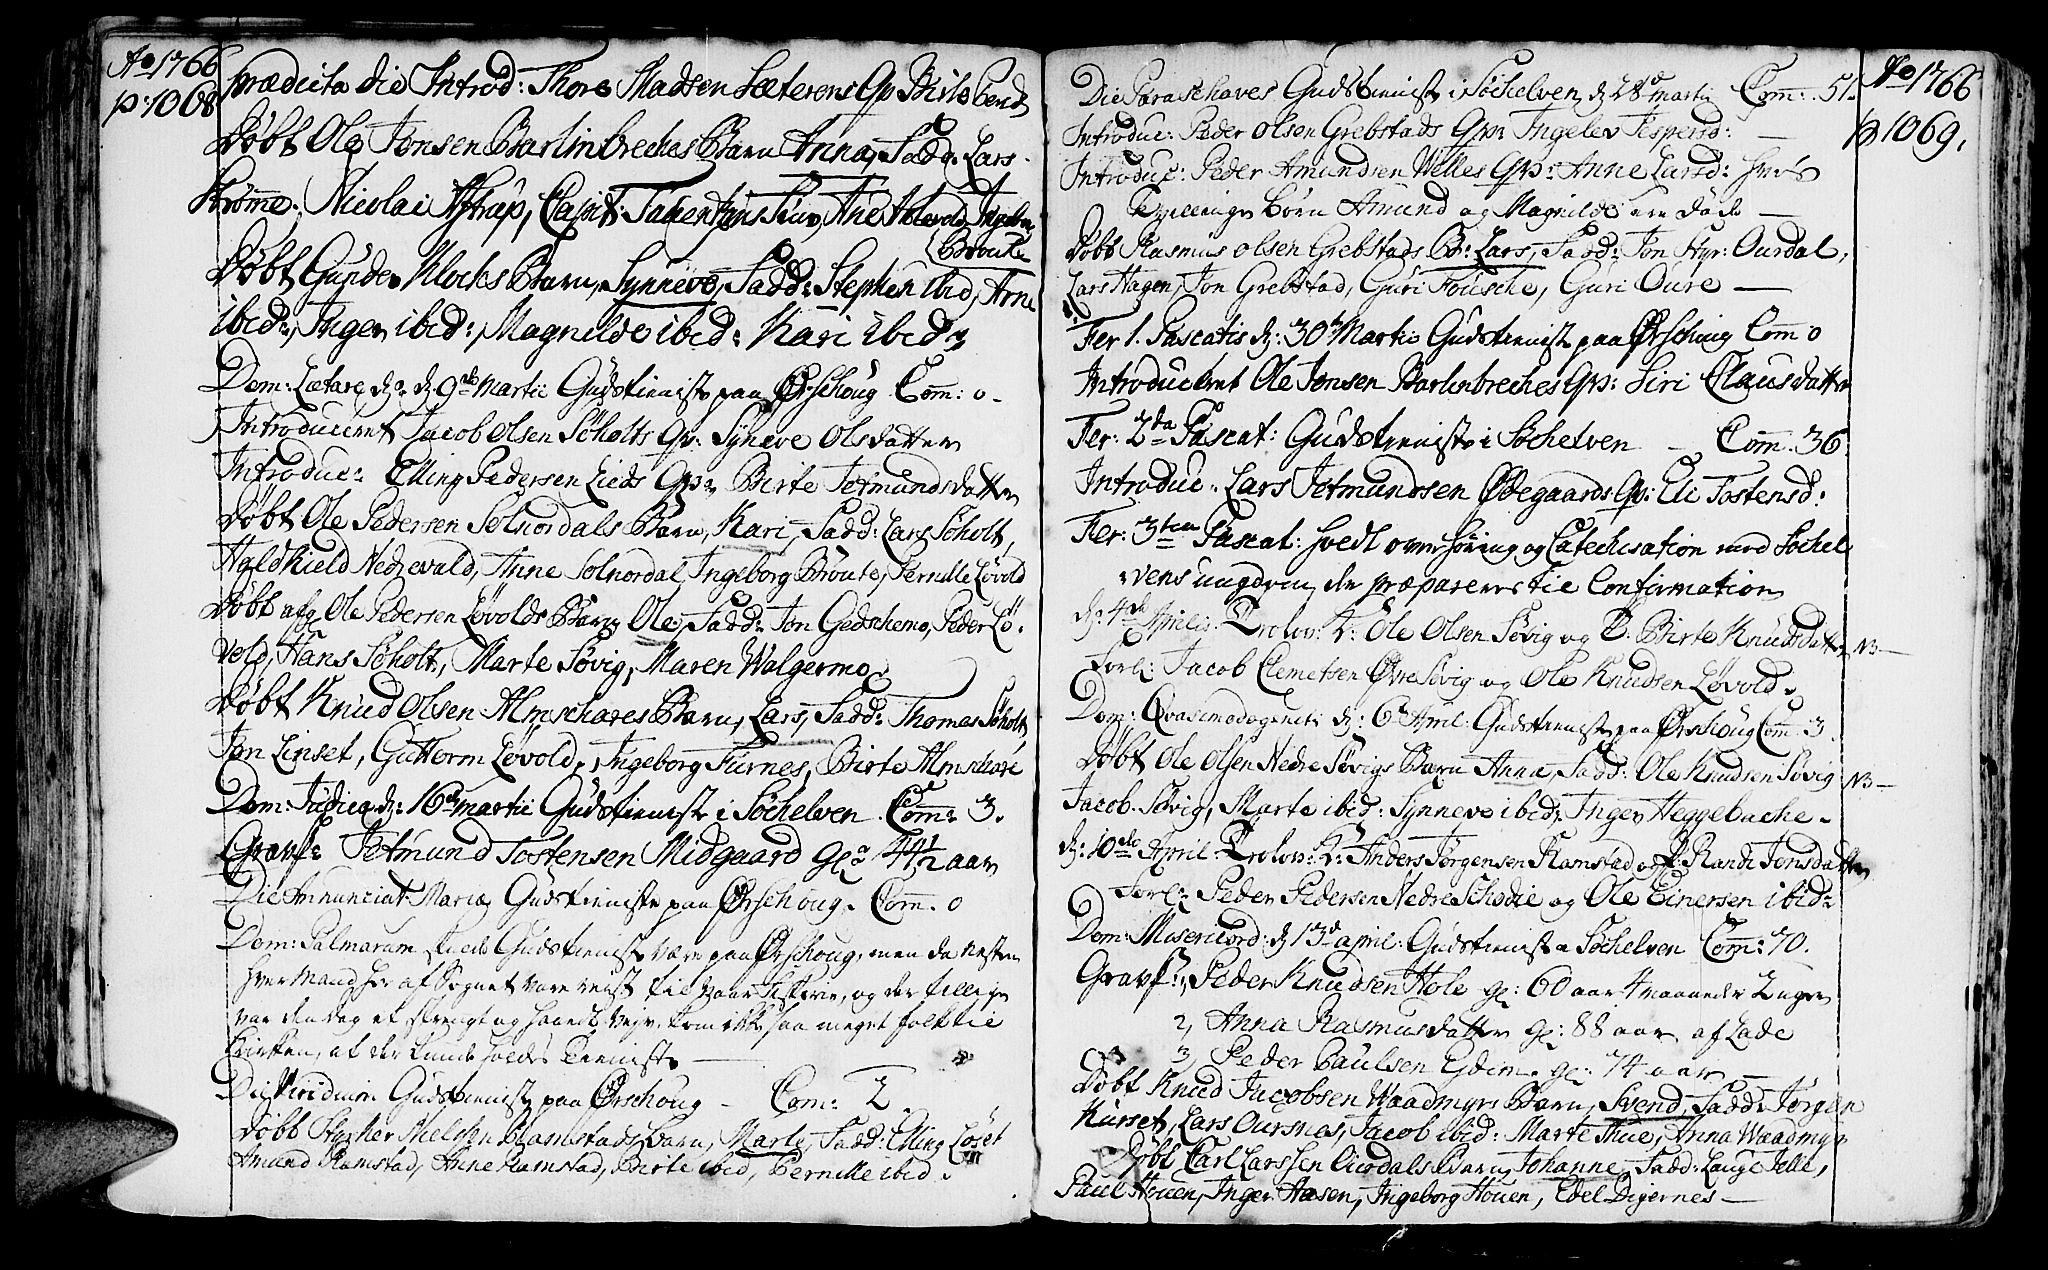 Ao 1766
p: 1068
Prædicta die Introd: Thore Madsen Sæterens Qv: Birte Bend
Døbt Ole Jonsen Barlinbreches Barn Anna, Fadd: Lars
Strømme, Nicolai Astrup, Capit: Ane
Broute
Døbt Gunder Klocks Barn, Synneve, Fadd: Stephen ibid, Arne
ibid:, Inger ibid:, Magnilde ibid: Kari ibid:
Dom: Lætare d: 9de Martii Gudstieniste paa Ørschoug Com: 0
Introduceret Jacob Olsen Søholts Qv: Syneve Olsdatter
Introduc: Elling Pedersen Lieds Qv: Birte Jetmundsdatter
Døbt Ole Pedersen Solnordals Barn, Kari, Fadd: Lars Søholt,
Haldkield Nedrevald, Anne Solnordal, Ingeborg Broute, Pernille Løvold
Døbt afg Ole Pedersen Løvolds Barn Ole, Fadd: Jon Gedschemo, Peder Lø-
vold, Hans Søholt, Marte Søvig, Maren Walgermo
Døbt Knud Olsen Almschares Barn, Lars, Fadd: Thomas Søholt,
Jon Linset, Guttorm Løvold, Ingeborg Furnes, Birte Almschare
Dom: Judica d: 16de Martii Gudstieniste i Søchelven Com: 3.
Gravf: Jetmund Tostensen Midgaard gl: 44½ aar
Die Annunciat: Mariæ Gudstieniste paa Ørschoug. Com. 0
Dom: Palmarum skulde Gudstieniste være paa Ørschoug, men da nesten
hver Mand her af Sognet vare reist til Vaar Fiskerie, og der tillige
var den dag et strengt og haardt Vejr, kom ikke saa meget folk til
Kirken, at der kunde holdes Tieniste
Die Viridium Gudstieniste paa Ørschoug - Com: 2
Døbt Nielsen Ramstads Barn, Marte, Fadd: Elling Løset
Amund Ramstad, Anne Ramstad, Birte ibid, Pernille ibid.
Ao 1766
p 1069.
Die Paraschaves Gudstieniste i Søchelven d: 28de martii Com: 51.
Introduc: Peder Olsen Grebstads Qv: Ingelev Jespersd:
Introduc: Peder Amundsen Welles Qv: Anne Larsd: hvis
Tvillinge Børn Amund og Magnilde ere døde
Døbt Rasmus Olsen Grebstads B: Lars, Fadd: Jon Ourdal,
Lars Hagen, Jon Grebstad, Guri Fousche, Guri Oure
Fer 1. Pascatis d: 30te Martii Gudstieniste paa Ørschoug Com 0
Introduceret Ole Jonsen Barlinbreches Qv: Siri Clausdatter
Fer: 2da Pascat: Gudstieniste i Søchelven - Com. 36.
Introduc: Lars Jetmundsen Ødegaards Qv: Eli Tostensd:
Fer: 3tia Pascat: holdt overhøring og Catechisation med Søchel
vens ungdom, der præpareres til Confirmation
d: 4de Aprilis. Trolov: K: Ole Olsen Søvig og P: Birte Knudsdatter NB
Forl: Jacob Clemetsen Øvre Søvig og Ole Knudsen Løvold.
Dom: Qvasimodogeniti d: 6te April: Gudstieniste paa Ørschoug Com: 3.
Døbt Ole Olsen Nedre Søvigs Barn Anna, Fadd: Ole Knudsen Søvig NB
Jacob Søvig, Marte ibid: Synneve ibid: Inger Heggebache.
d: 10de April. Trolov: K: Anders Jørgensen Ramstad og P: Randi Jonsdatter
Forl: Peder Pedersen Nedre Schodie og Ole Einersen ibid:
Dom: Misericord: d: 13de april: Gudstieniste Søchelven Com: 70.
Gravf: 1, Peder Knudsen Hole gl: 60 aar 4 maaneder 2 uger
2, Anna Rasmusdatter gl: 88 aar af Lade
3, Peder Paulsen Eidem gl: 74 aar
Døbt Knud Jacobsen Waadmyrs Barn, Svend, Fadd: Jørgen
Kurset, Lars Oursnes, Jacob ibid: Marte Thue, Anna Waadmyr
Døbt Carl Larssen Barn Johanne, Fadd: Lauge Velle,
Paul Houen, Inger Aasen, Ingeborg Houen, Edel Digernes